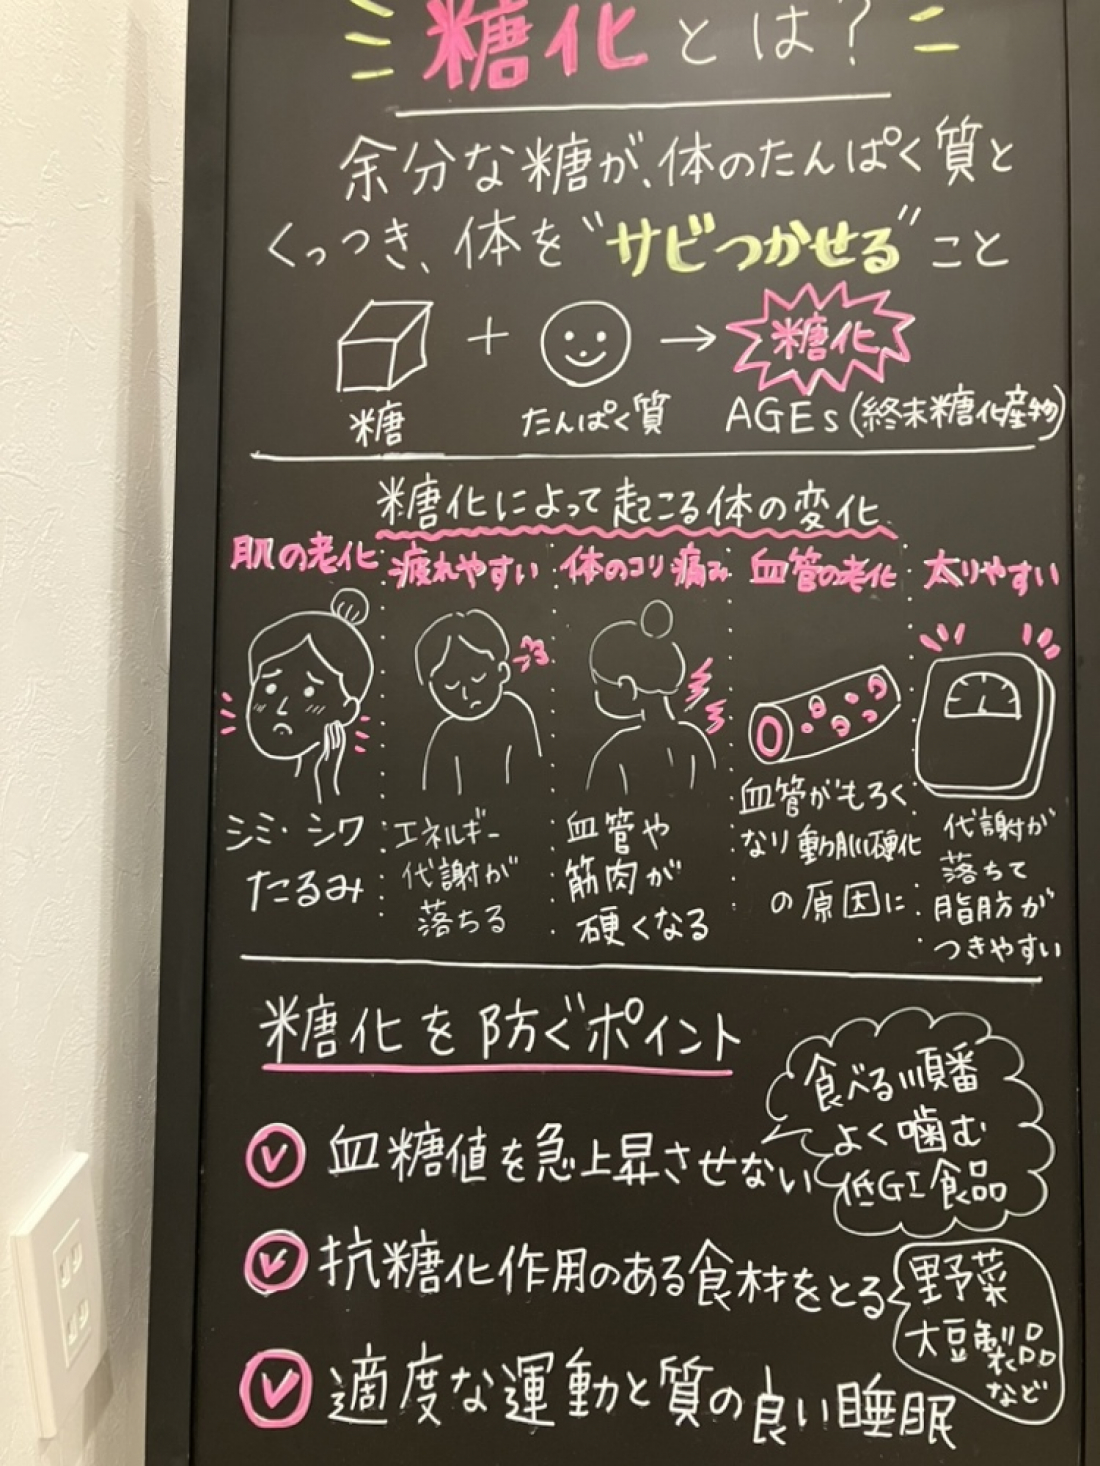 糖化とは？
余分な糖が、体のたんぱく質と
くっつき、体を“サビつかせる”こと
糖 + たんぱく質 → 糖化
AGEs(終末糖化産物)
糖化によって起こる体の変化
肌の老化
シミ・シワ
たるみ
疲れやすい
エネルギー
代謝が
落ちる
体のコリ痛み
血管や
筋肉が
硬くなる
血管の老化
血管がもろく
なり動脈硬化
の原因に
太りやすい
代謝が
落ちて
脂肪が
つきやすい
糖化を防ぐポイント
血糖値を急上昇させない
食べる順番
よく噛む
低GI食品
抗糖化作用のある食材をとる
野菜
大豆製品
など
適度な運動と質の良い睡眠